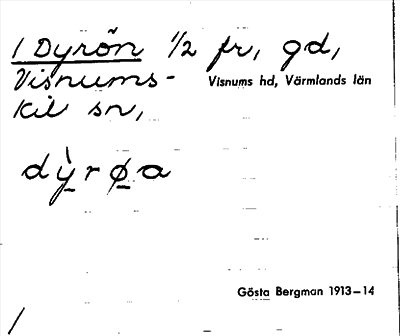 1 Dyrön 1/2 fr, gd,
Visnums-
Visnums hd, Värmlands län
Kil sn,
dỳ̠rø̠a
Gösta Bergman 1913–14
/